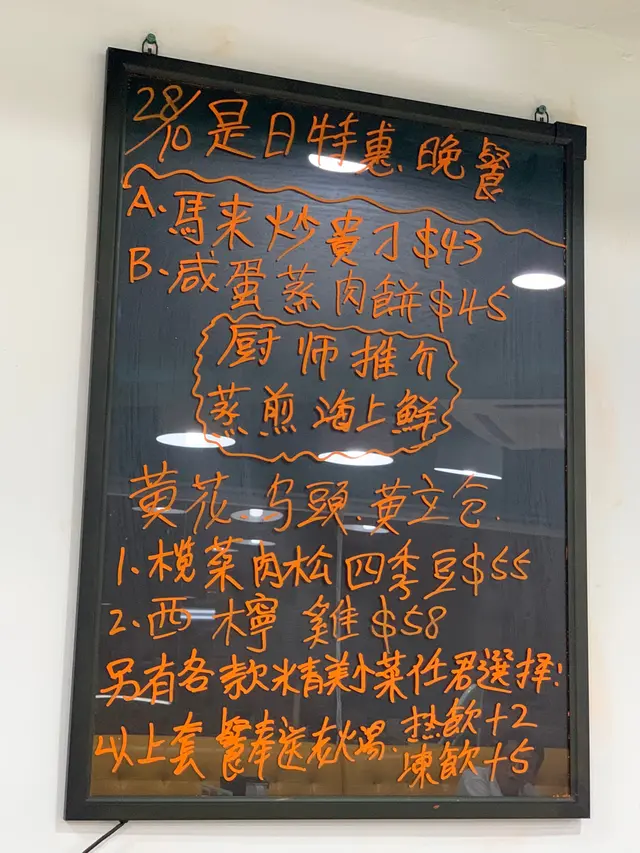 28/10 是日特惠.晚餐
A.馬来炒貴刁$43
B.咸蛋蒸肉餅$45
厨师推介
蒸煎海上鮮
黄花.乌頭.黄立仓.
1.榄菜肉松四季豆$55
2.西檸雞$58
另有各款精美小菜任君選择!
以上套餐奉送老火湯.热飲+2
凍飲+5